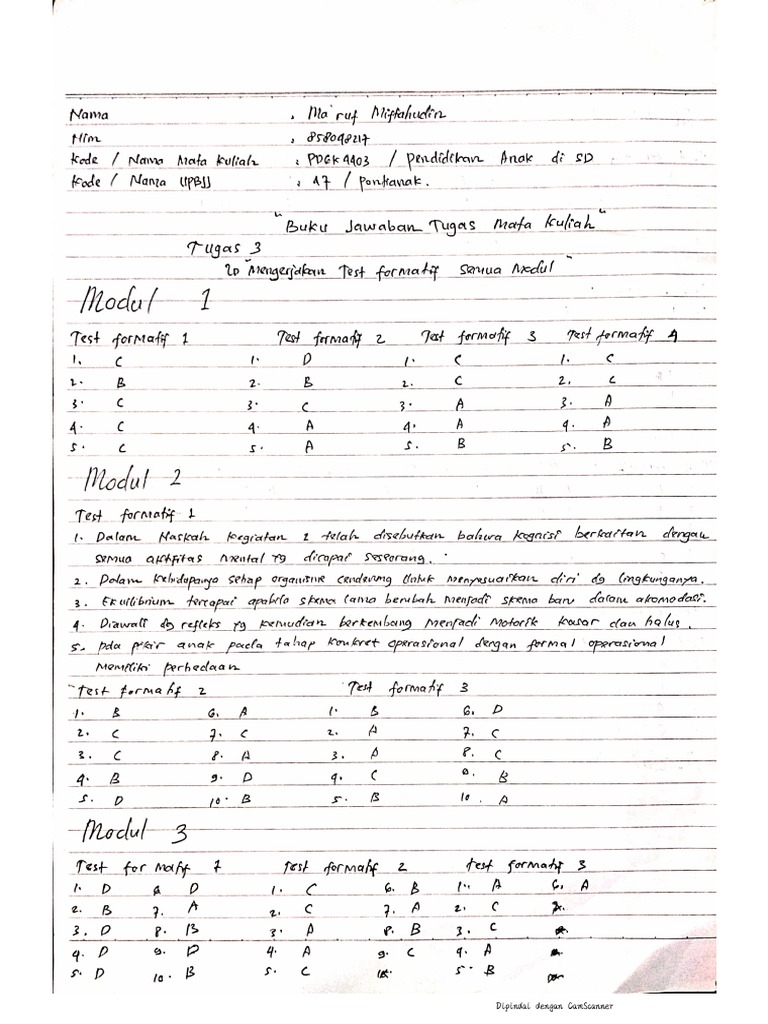 Nama : Ma'ruf Miftahudin
Nim : 858048217
Kode / Nama Mata Kuliah : PDGK4403 / Pendidikan Anak di SD
Kode / Nama (UPBJJ) : 47 / Pontianak.
"Buku Jawaban Tugas Mata Kuliah"
Tugas 3
20 "Mengerjakan Test formatif semua Modul"
Modul 1
Test formatif 1 Test formatif 2 Test formatif 3 Test formatif 4
1. C 1. D 1. C 1. C
2. B 2. B 2. C 2. C
3. C 3. C 3. A 3. A
4. C 4. A 4. A 4. A
5. C 5. A 5. B 5. B
Modul 2
Test formatif 1
1. Dalam Naskah Kegiatan 1 telah disebutkan bahwa kognisi berkaitan dengan
semua aktifitas mental yg dicapai seseorang.
2. Dalam Kehidupanya setiap organisme cenderung untuk menyesuaikan diri dg lingkunganya.
3. Ekuilibrium tercapai apabila skema lama berubah menjadi skema baru dalam akomodasi.
4. Diawali dg refleks yg kemudian berkembang menjadi Motorik kasar dan halus.
5. pda pikir anak pada tahap konkret operasional dengan formal operasional
Memiliki perbedaan
Test formatif 2 Test formatif 3
1. B 6. A 1. B 6. D
2. C 7. C 2. A 7. C
3. C 8. A 3. A 8. C
4. B 9. D 4. C 9. B
5. D 10. B 5. B 10. A
Modul 3
Test formatif 1 Test formatif 2 Test formatif 3
1. D 6. D 1. C 6. B 1. A 6. A
2. B 7. A 2. C 7. A 2. C
3. D 8. B 3. A 8. B 3. C
4. D 9. D 4. A 9. C 4. A
5. D 10. B 5. C 5. B
Dipindai dengan CamScanner